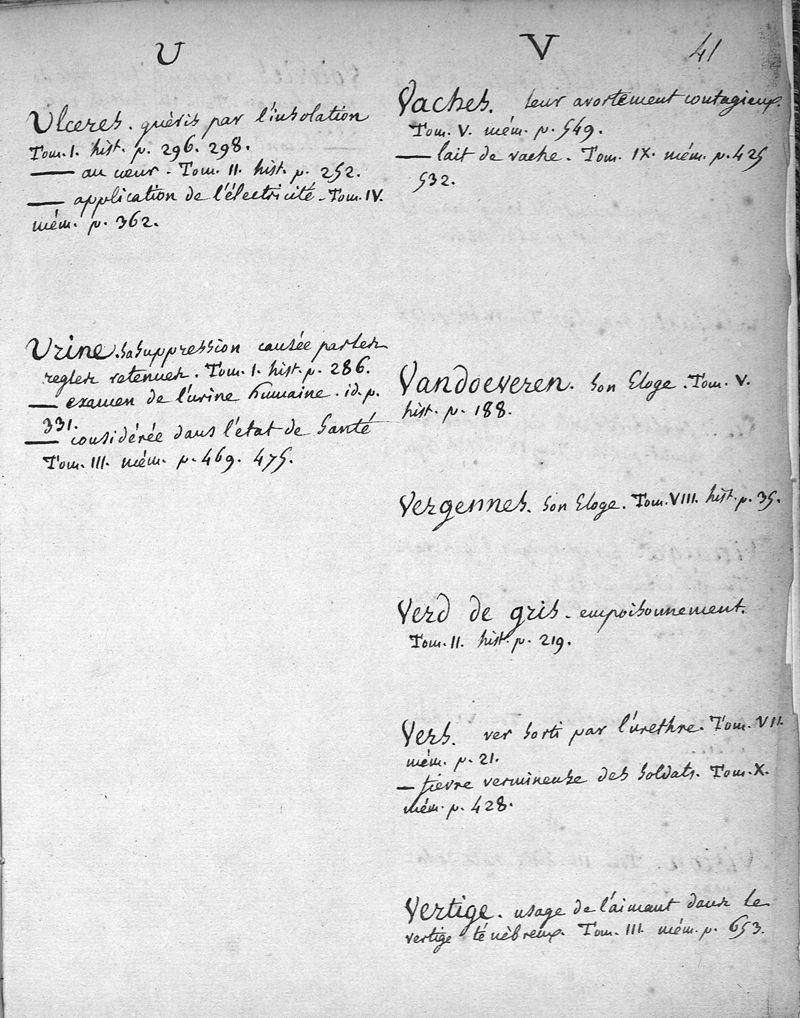 U
Ulceres. guéris par l'insolation
Tom. I. hist. p. 296. 298.
— au cœur. Tom. II. hist. p. 252.
— application de l'électricité. Tom. IV.
mém. p. 362.
Urine. sa suppression causée par les
regles retenues. Tom. I. hist. p. 286.
— examen de l'urine humaine. id. p.
331.
— considérée dans l'état de santé
Tom. III. mém. p. 469. 475.
V
41
Vaches. leur avortement contagieux.
Tom. V. mém. p. 549.
— lait de vache. Tom. IX. mém. p. 425
532.
Vandoeveren. son Eloge. Tom. V.
hist. p. 188.
Vergennes. son Eloge. Tom. VIII. hist. p. 35.
Verd de gris. empoisonnement.
Tom. II. hist. p. 219.
Vers. ver sorti par l'urethre. Tom. VII.
mém. p. 21.
— fievre vermineuse des soldats. Tom. X.
mém. p. 428.
Vertige. usage de l'aimant dans le
vertige ténébreux. Tom. III. mém. p. 653.